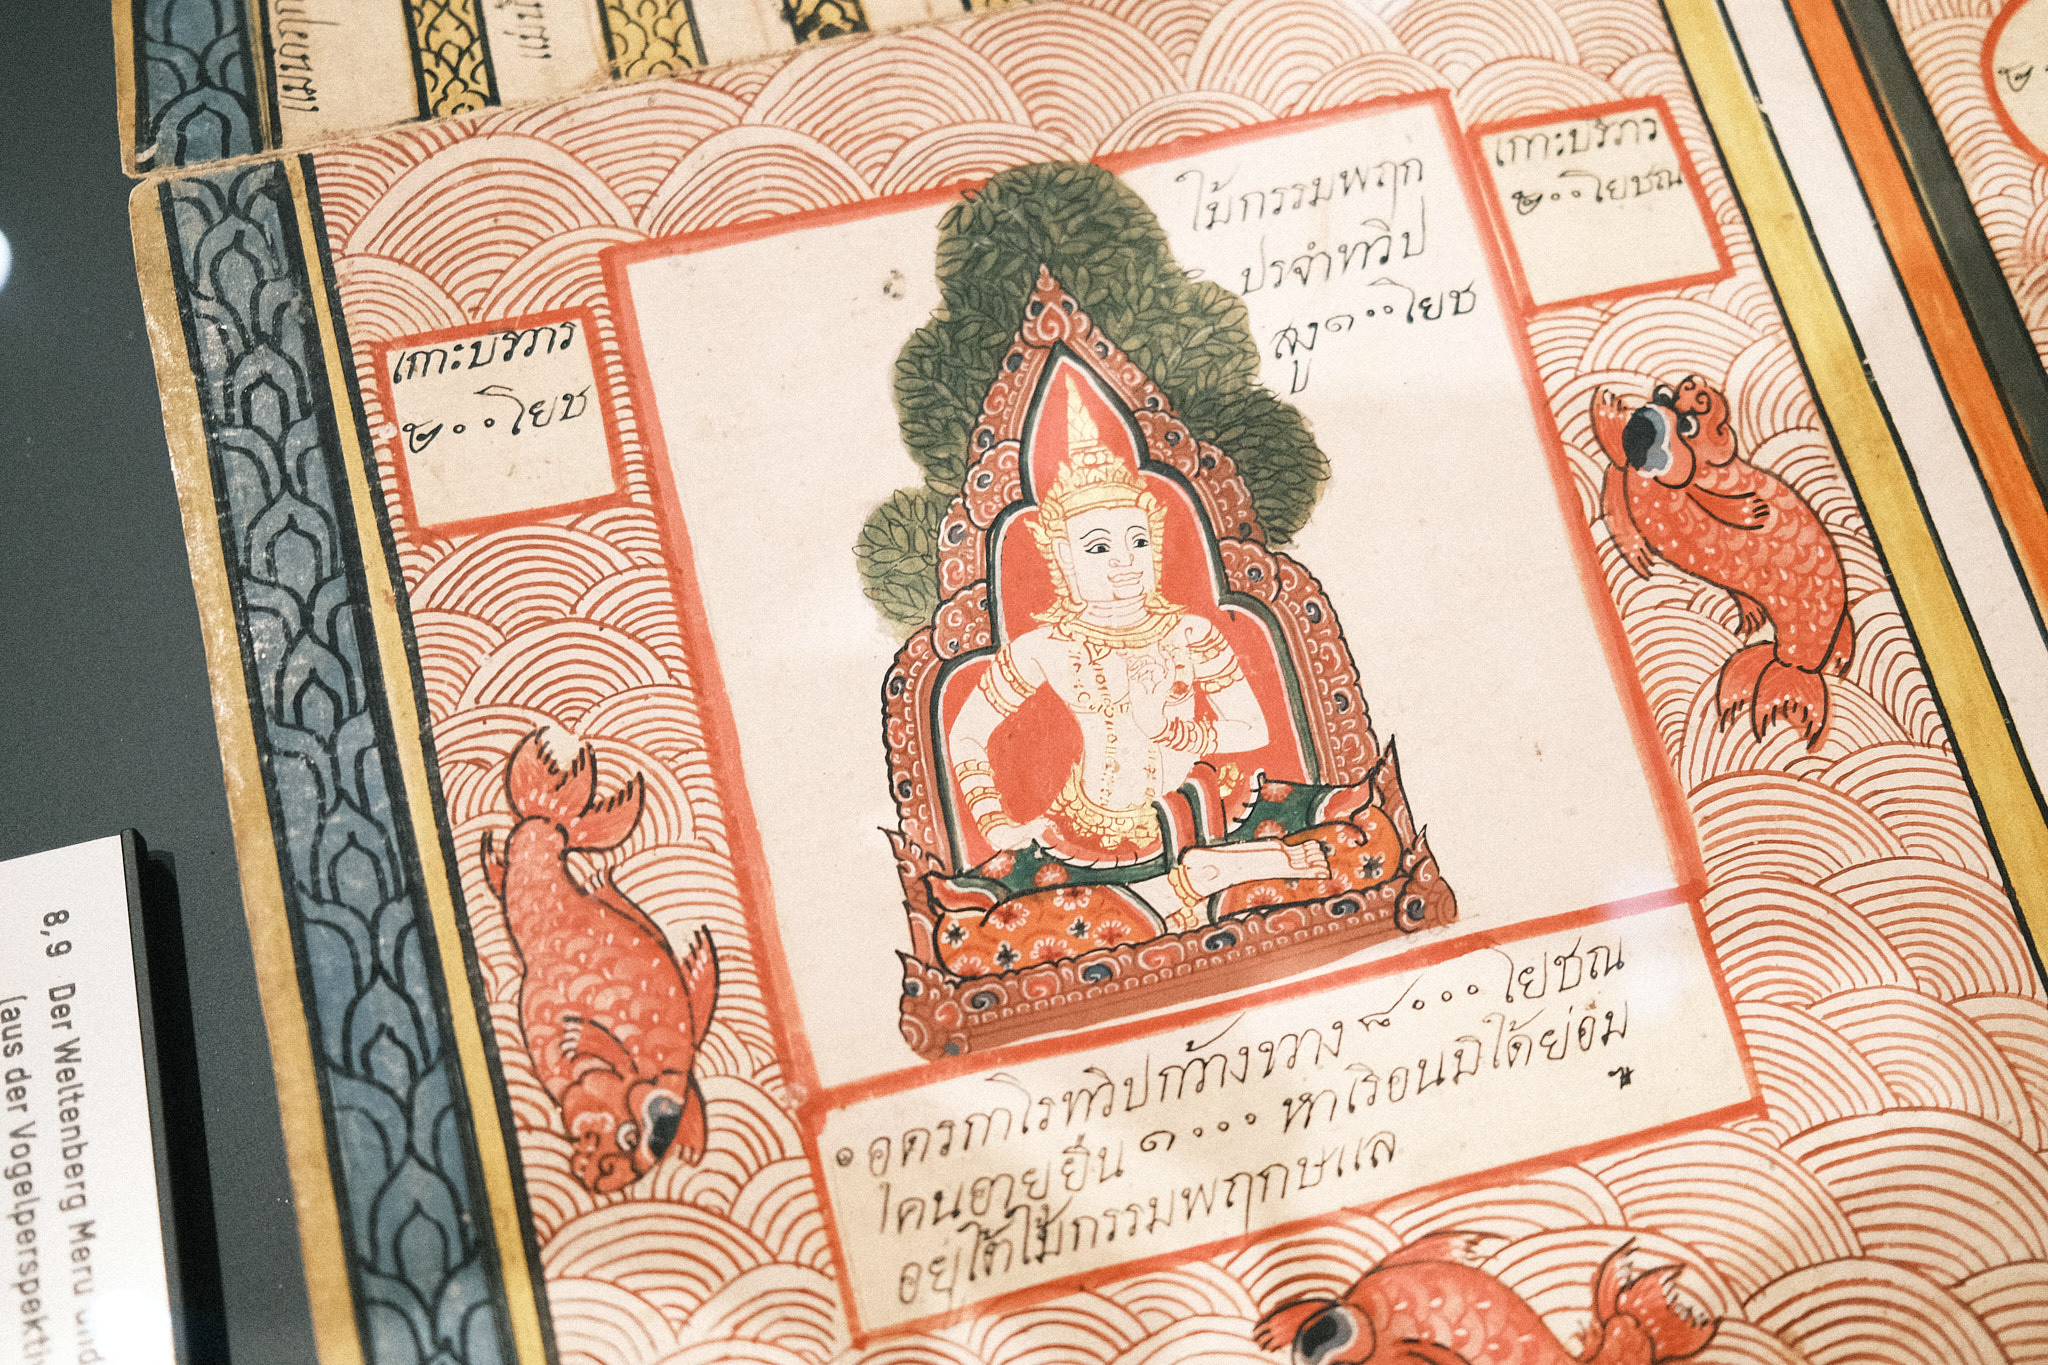 ไม้กรรมพฤก
ปรจำทวีป
สูง๑๐๐โยช
เกาะบริวาร
๒๐๐โยชณ
เกาะบริวาร
๒๐๐โยช
๏ อุดรกาโรทวีปกว้างขวาง ๘๐๐๐ โยชณ
ไคนอายุยืน ๑๐๐๐ หาเรือนมิได้ย่อม
อยู่ไต้ไม้กรรมพฤกษแล
8,9 Der Weltenberg Meru und
(aus der Vogelperspekti